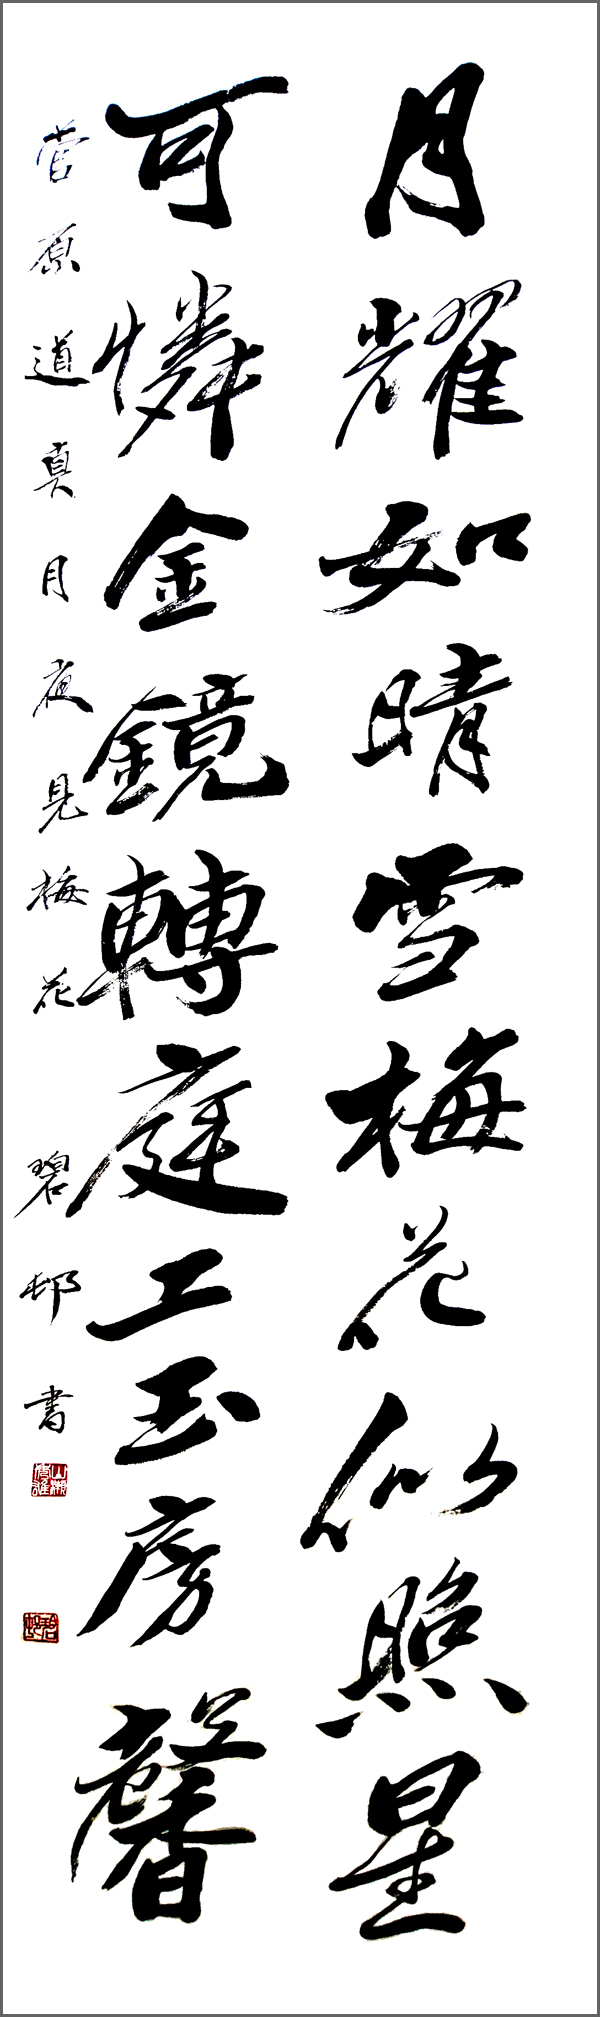 月耀如晴雪梅花似照星
可憐金鏡轉庭上玉房馨
菅原道真月夜見梅花 碧邨書